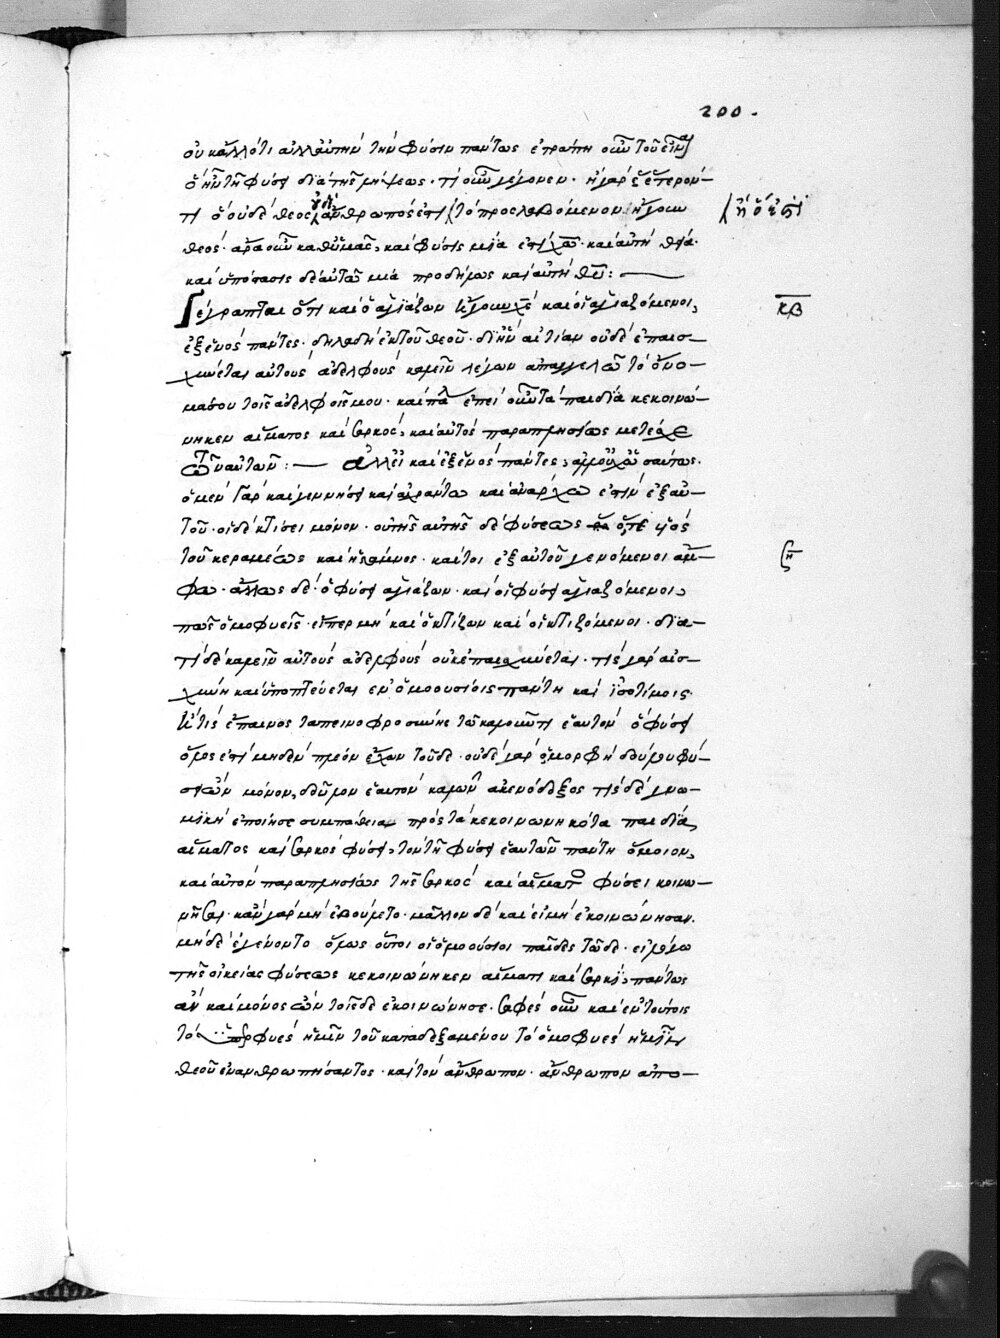 200.
οὐ κατ' ἄλλό τι ἀλλ' αὐτὴν τὴν φύσιν πάντως ἐτράπη οὖν τοῦ εἶναι
ὃ ἦν τῇ φύσει διὰ τῆς μίξεως· τί οὖν γέγονεν· ἢ γὰρ ἕτερόν
τι ὃ οὐδὲ θεὸς οὐδὲ ἄνθρωπός ἐστι τὸ προσλαβόμενον ἤγουν
ἢ ὅ ἐστι
θεός· ἄρα οὖν καθ' ὑμᾶς, καὶ φύσις μία ἐστὶ χῦ· καὶ αὐτὴ θεία·
καὶ ὑπόστασις δὲ αὐτοῦ μία προδήλως καὶ αὐτὴ θεῦ:
κβ
Γέγραπται ὅτι καὶ ὁ ἁγιάζων ἤγουν χς καὶ οἱ ἁγιαζόμενοι,
ἐξ ἑνὸς πάντες· δηλαδὴ ἐκ τοῦ θεοῦ· δι' ἣν αἰτίαν οὐδὲ ἐπαισ-
χύνεται αὐτοὺς ἀδελφοὺς καλεῖν λέγων ἀπαγγελῶ τὸ ὄνο-
μά σου τοῖς ἀδελφοῖς μου· καὶ πάλιν ἐπεὶ οὖν τὰ παιδία κεκοινώ-
νηκεν αἵματος καὶ σαρκός, καὶ αὐτὸς παραπλησίως μετέσχε
τῶν αὐτῶν: ἀλλ' εἰ καὶ ἐξ ἑνὸς πάντες, ἀλλ' οὐχ ὡσαύτως·
ὁ μὲν γὰρ καὶ γεννήσει καὶ ἀχράντω καὶ ἀνάρχω ἐστὶν ἐξ αὐ-
τοῦ· οἱ δὲ κτίσει μόνον· οὐ τῆς αὐτῆς δὲ φύσεως ὅ τε υἱὸς
ζη
τοῦ κεραμέως καὶ ἡ κάμινος· καίτοι ἐξ αὐτοῦ γενόμενοι ἄμ-
φω· ἄλλως δὲ· ὁ φύσει ἁγιάζων· καὶ οἱ φύσει ἁγιαζόμενοι,
πῶς ὁμοφυεῖς· εἴπερ μὴ καὶ ὁ κτίζων καὶ οἱ κτιζόμενοι· διὰ
τί δὲ καλεῖν αὐτοὺς ἀδελφοὺς οὐκ ἐπαισχύνεται· τίς γὰρ αἰσ-
χύνη καὶ ὑποπτεύεται ἐν ὁμοουσίοις πάντη καὶ ἰσοτίμοις·
ἢ τίς ἔπαινος ταπεινοφροσύνης τῷ καλοῦντι ἑαυτὸν ὃ φύσει
ὅμως ἐστὶ μηδὲν πλέον ἔχων τοῦδε· οὐδὲ γὰρ ὁ μορφὴ δούλου φύ-
σιν μόνον, δοῦλον ἑαυτὸν καλῶν ἀκενόδοξος τίς δὲ γνω-
μικὴ ἐποίησε συμπάθεια πρὸς τὰ κεκοινωνηκότα παιδία,
αἵματος καὶ σαρκὸς φύσει, τὸν τῇ φύσει ἑαυτῶν πάντη ὅμοιον,
καὶ αὐτὸν παραπλησίως τῆς σαρκὸς καὶ αἵματος φύσει κοινω-
νῆσαι· κἂν γὰρ μὴ ἐβούλετο· μᾶλλον δὲ καὶ εἰ μὴ ἐκοινώνησαν·
μηδὲ ἐγένοντο ὅλως οὗτοι οἱ ὁμοούσιοι παῖδες τῶδε· εἰ λόγω
τῆς οἰκείας φύσεως κεκοινώνηκεν αἵματι καὶ σαρκί, πάντως
ἂν καὶ μόνος ὢν τοῖσδε ἐκοινώνησε· σαφὲς οὖν καὶ ἐν τούτοις
τὸ ὑπερφυὲς ἡμῖν τοῦ καταδεξαμένου τὸ ὁμοφυὲς ἡμῖν
θεοῦ ἐνανθρωπήσαντος· καὶ τὸν ἄνθρωπον· ἄνθρωπον ἀπο-